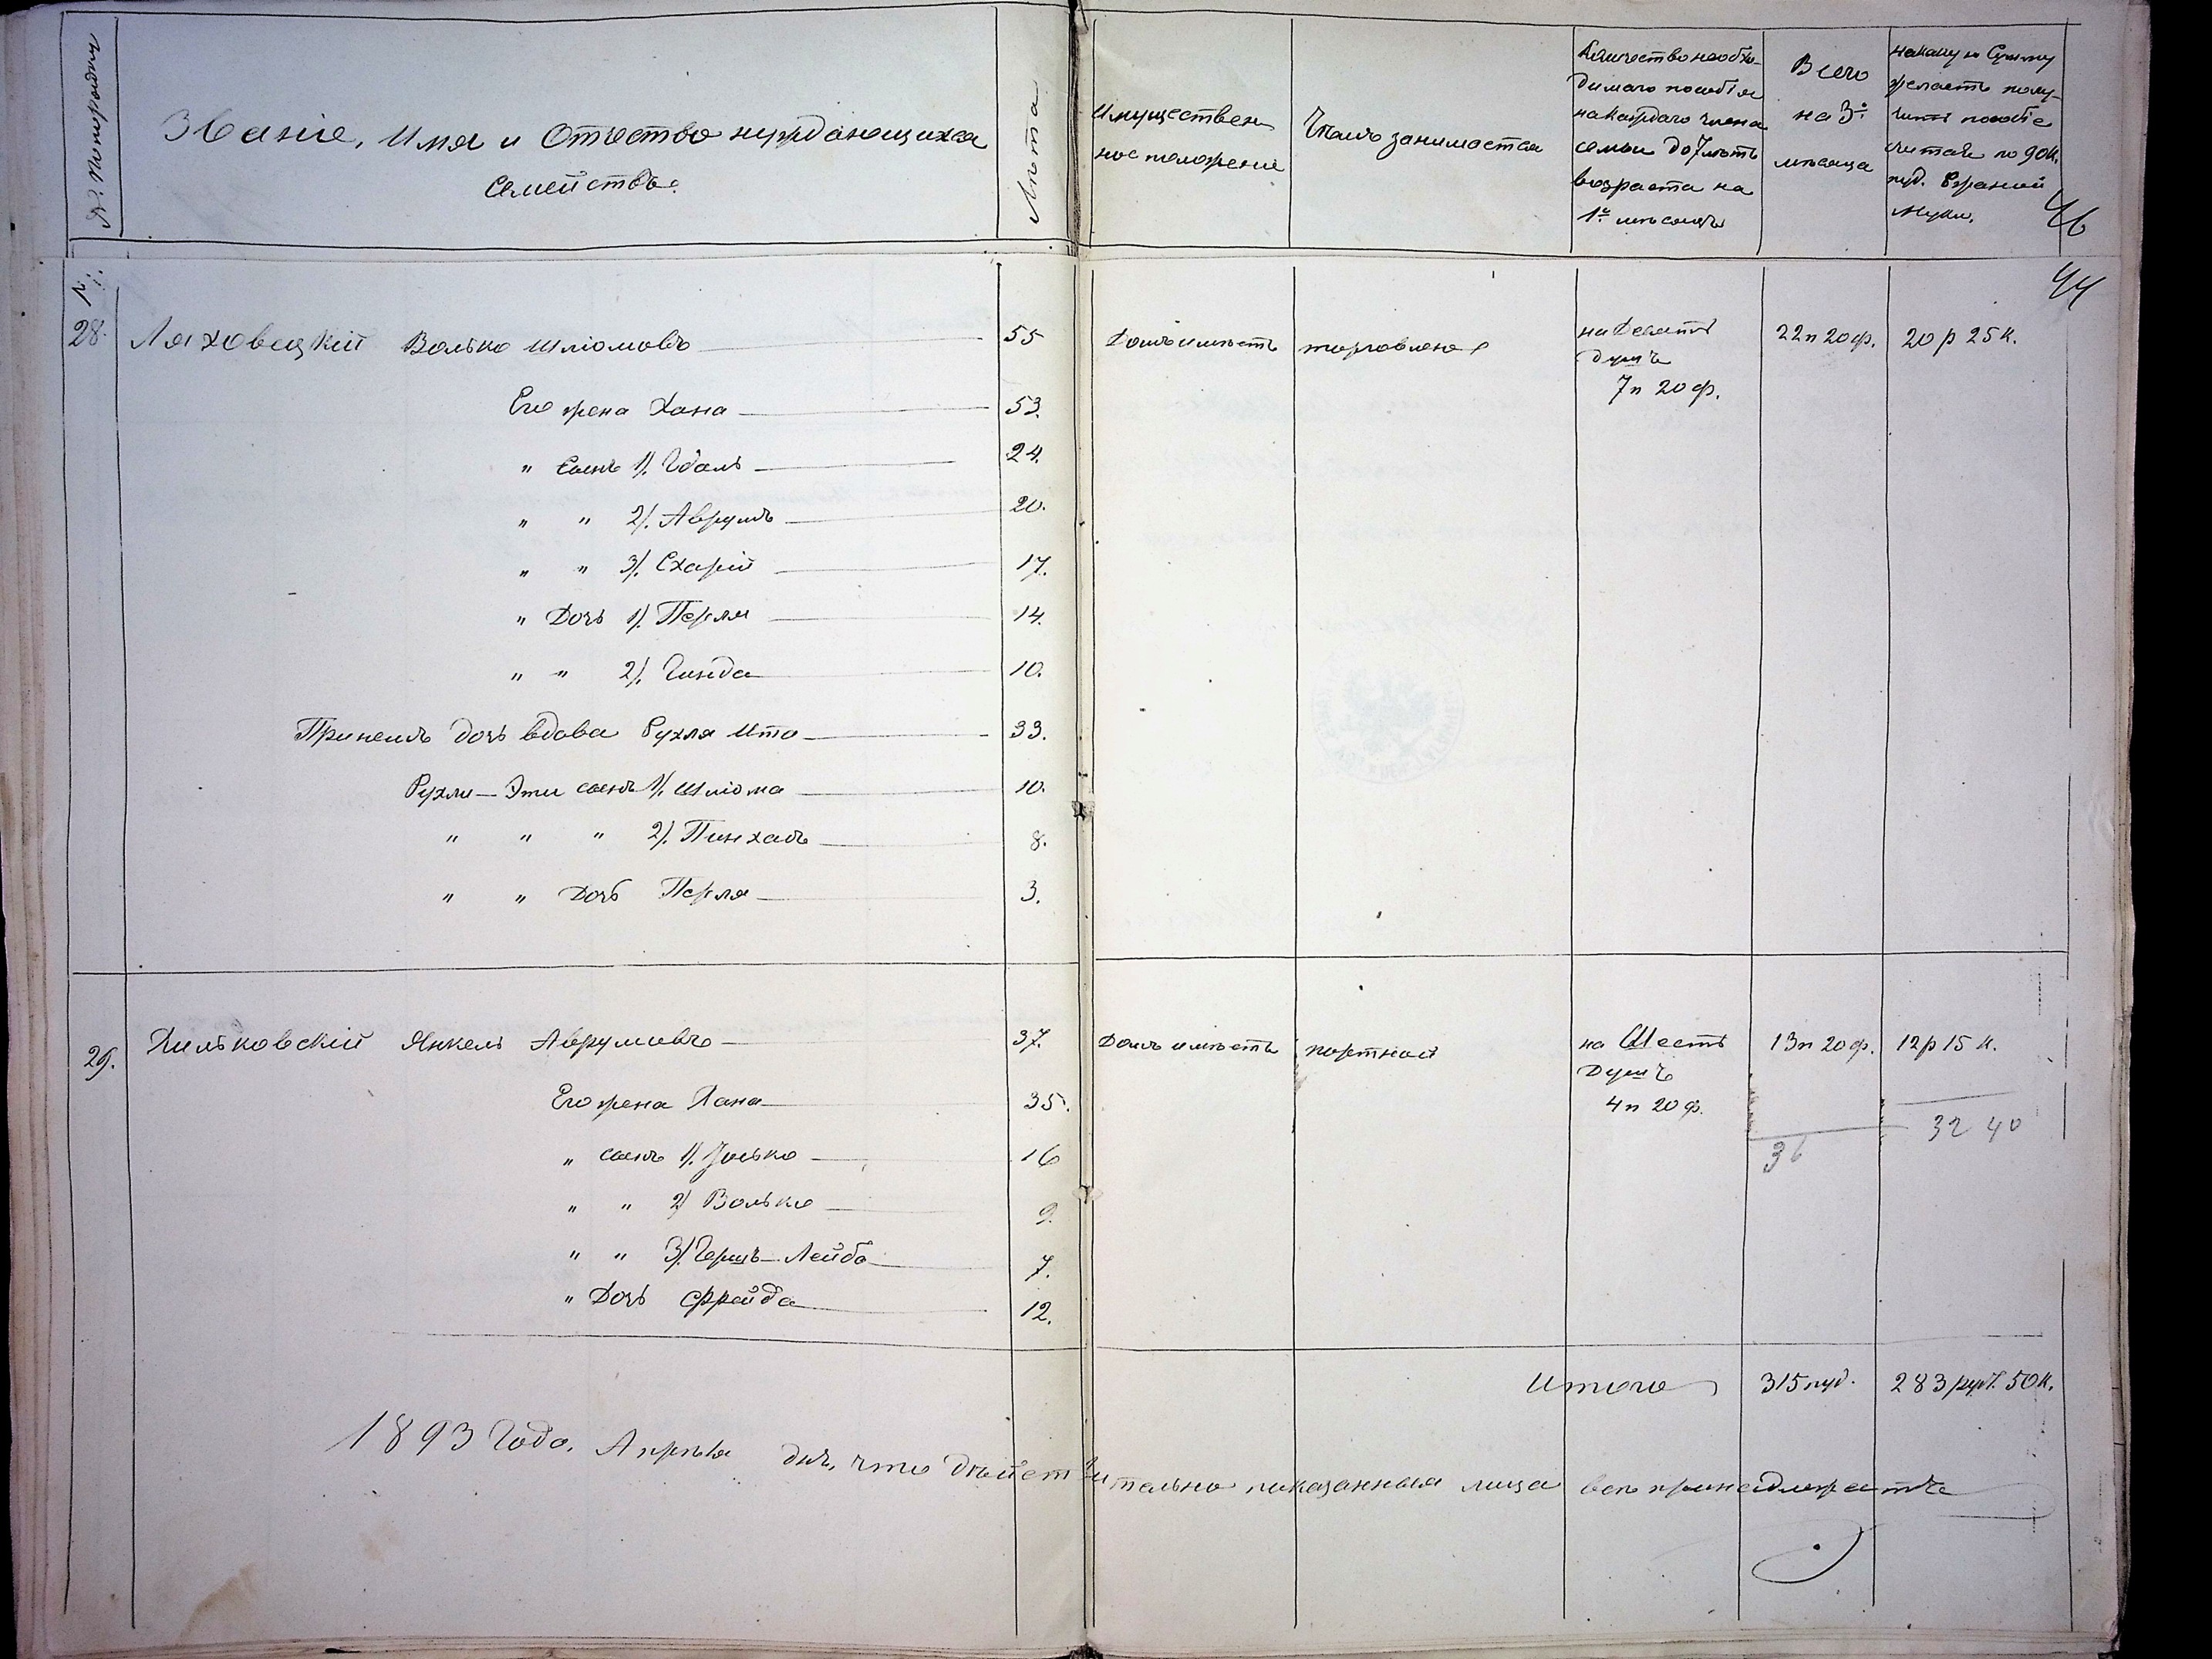 № по порядку
Званіе, Имя и Отчество нуждающихся
Семействъ.
Лѣта
Имуществен
ное положеніе
Чѣмъ занимается
Количество необхо-
димаго пособія
на каждаго члена
семьи до 7 лѣтъ
возраста на
1й мѣсяцъ
Всего
на 3и
мѣсяца
на какую Сумму
желаетъ полу-
чить пособіе
считая по 90 к.
пуд. Ржаной
Муки.
46
44
28. Ляховецкій Волько Шліомовъ 55 Домъ имѣетъ торговлею на Десять 22 п 20 ф. 20 р 25 к.
душъ
7 п 20 ф.
Его жена Хана 53.
" Сынъ 1/. Гдаль 24.
" " 2/. Аврумъ 20.
" " 3/. Схарій 17.
" Дочь 1/. Перля 14.
" " 2/. Гинда 10.
дочь вдова Рухля Ита 33.
Рухли-Эти сынъ 1/. Шліома 10.
" " " 2/. Пинхасъ 8.
" " Дочь Перля 3.
29. Хильковскій Янкель Аврумовъ 37. Домъ имѣетъ портной на Шесть 13 п 20 ф. 12 р 15 к.
Душъ
4 п 20 ф.
Его жена Хана 35.
36 32 40
" сынъ 1/. Іосько 16
" " 2/ Волько 9.
" " 3/. Герцъ-Лейба 7.
" Дочь Фрейда 12.
Итого 315 пуд. 283 руб. 50 к.
1893 Года. Апрѣля дня, что дѣйствительно показанныя лица всѣ принадлежатъ